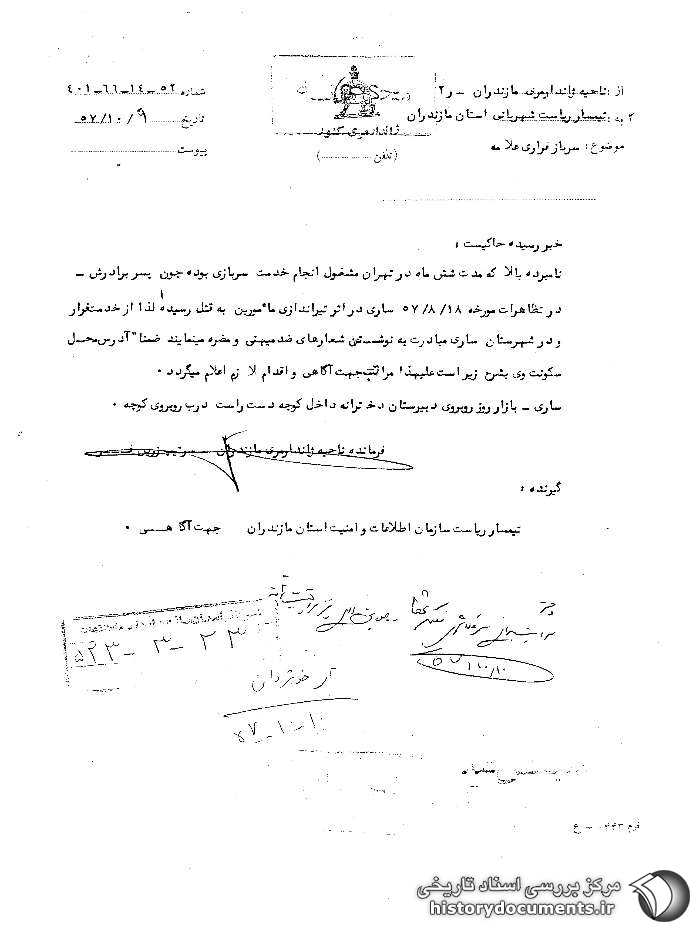 از : ناحیه ژاندارمری مازندران - ر۲
به : تیمسار ریاست شهربانی استان مازندران
موضوع : سرباز فراری علا مه
ژاندارمری کشور
(تلفن ............)
شماره ۵۲-۱۴-۶۶-۴۰۱
تاریخ ۵۷/۱۰/۹
پیوست
خبر رسیده حاکیست :
نامبرده بالا که مدت شش ماه در تهران مشغول انجام خدمت سربازی بوده چون پسر برادرش -
در تظاهرات مورخه ۵۷/۸/۱۸ ساری در اثر تیراندازی مأمورین به قتل رسیده لذا از خدمتفرار
و در شهرستان ساری مبادرت به نوشتن شعارهای ضد میهنی و مضره مینمایند ضمنا" آدرس محل
سکونت وی بشرح زیر است علیهذا مراتب جهت آگاهی و اقدام لا زم اعلام میگردد ۰
ساری - بازار روز روبروی دبیرستان دخترانه داخل کوچه دست راست درب روبروی کوچه ۰
فرمانده ناحیه ژاندارمری مازندران
گیرنده :
تیمسار ریاست سازمان اطلاعات و امنیت استان مازندران جهت آگاهی ۰
۵۷/۱۰/۱۰
۲۳-۳-۵۹۳
۵۷-۱۰-۱۰
فرم ۴۴۳ - ع
مرکز بررسی اسناد تاریخی
historydocuments.ir